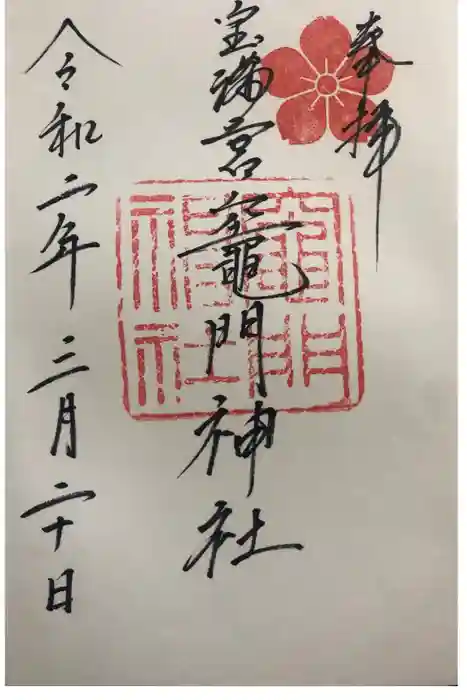 奉拝
宝満宮竈門神社
竈門
神社
令和二年三月二十日